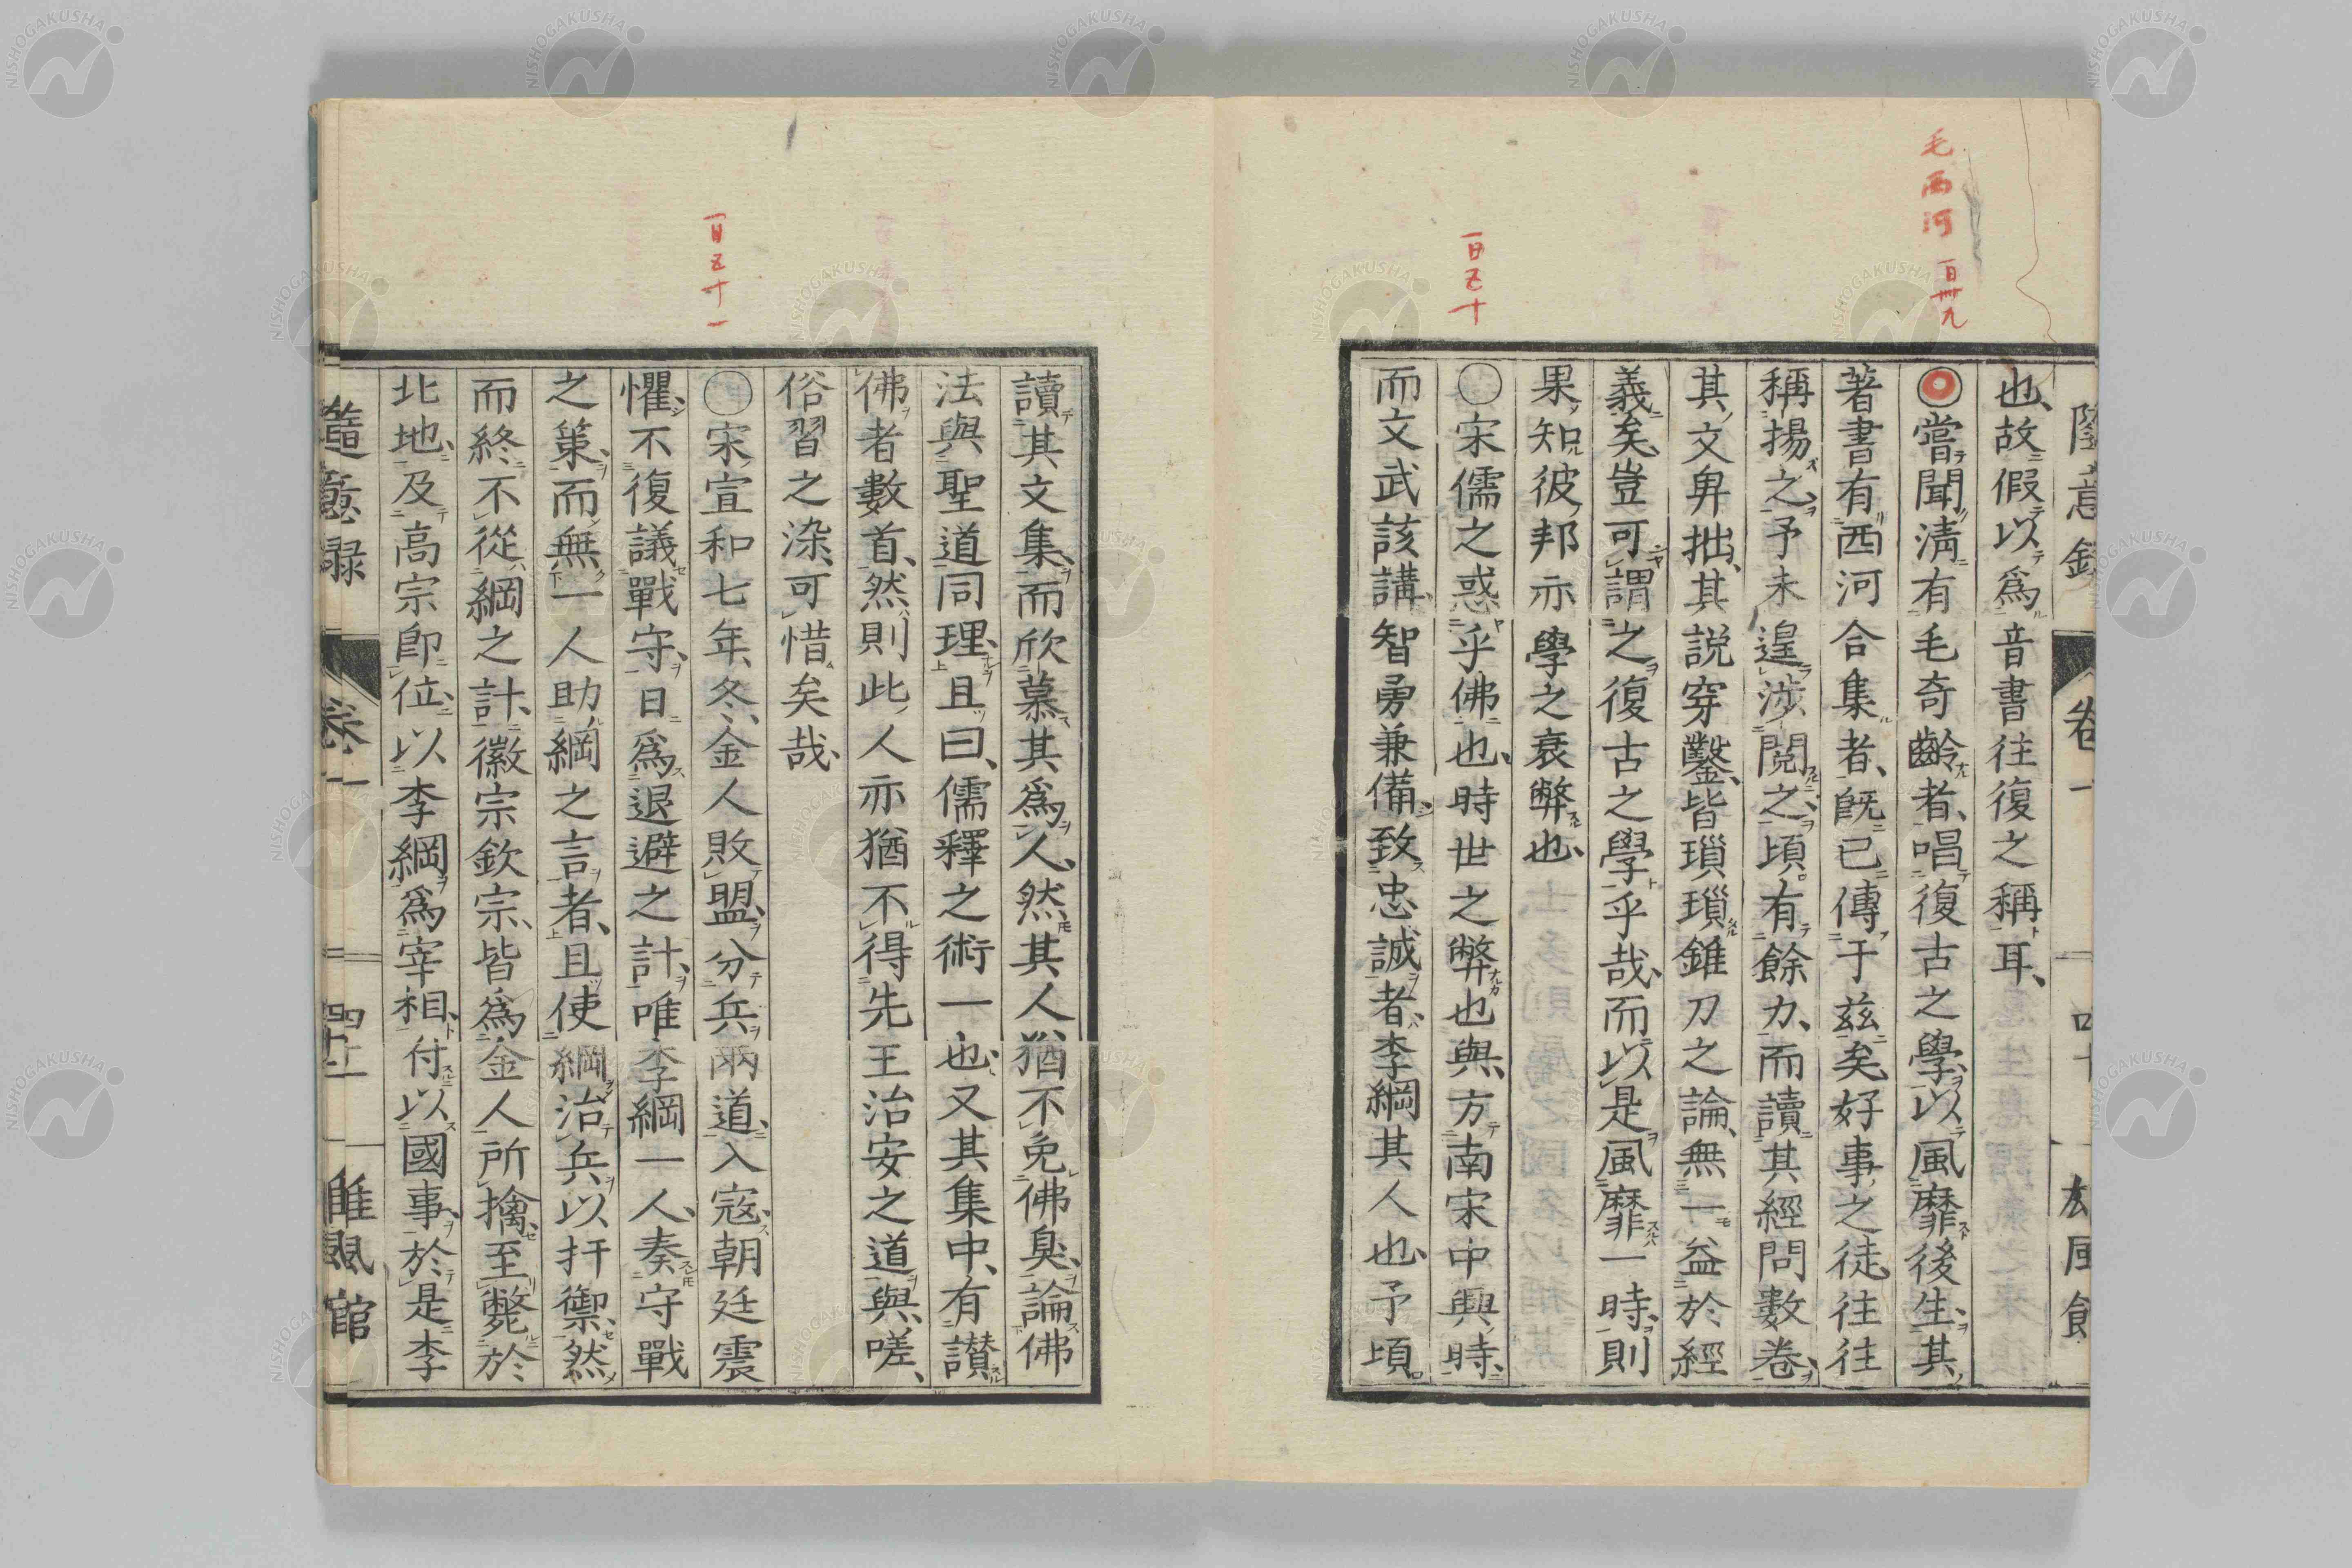 毛西河
百卌九
百五十
也故假以爲音書往復之稱耳
◯嘗聞淸有毛奇齡者唱復古之學以風靡後生其
著書有西河合集者旣已傳于茲矣好事之徒往往
稱揚之予未遑涉閱之頃有餘力而讀其經問數卷
其文卑拙其說穿鑿皆瑣瑣錐刀之論無一益於經
義矣豈可謂之復古之學乎哉而以是風靡一時則
果知彼邦亦學之衰弊也
◯宋儒之惑乎佛也時世之弊也與方南宋中興時
而文武該講智勇兼備致忠誠者李綱其人也予頃
百五十一
讀其文集而欣慕其爲人然其人猶不免佛臭論佛
法與聖道同理且曰儒釋之術一也又其集中有讃
佛者數首然則此人亦猶不得先王治安之道與嗟
俗習之染可惜矣哉
◯宋宣和七年冬金人敗盟分兵兩道入寇朝廷震
懼不復議戰守日爲退避之計唯李綱一人奏守戰
之策而無一人助綱之言者且使綱治兵以扞禦然
而終不從綱之計徽宗欽宗皆爲金人所擒至斃於
北地及高宗卽位以李綱爲宰相付以國事於是李
隨意録 卷一 四十五 雄風館
NISHOGAKUSHA